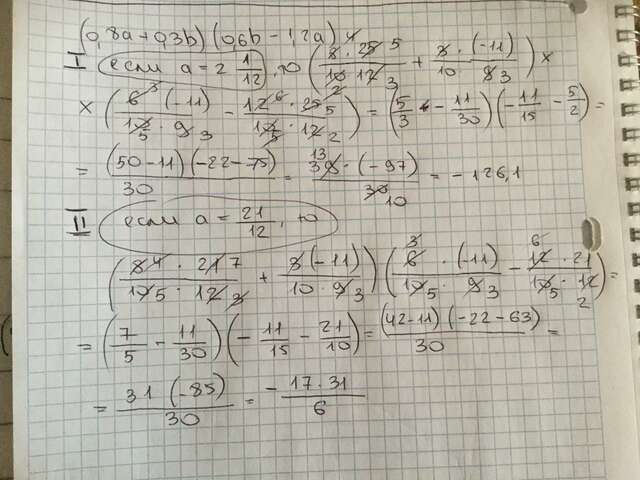 (0,8a+0,3b)(0,6b-1,2a)
I если a=2 1/12, то (8·25/10·12 + 3·(-11)/10·9) ×
× (6·(-11)/10·9 - 12·25/10·12) = (5/3 - 11/30)(-11/15 - 5/2) =
= (50-11)(-22-75)/30 = 39·(-97)/30 = -126,1
II если a=21/12, то
(8·21/10·12 + 3(-11)/10·9)(6·(-11)/10·9 - 12·21/10·12) =
= (7/5 - 11/30)(-11/15 - 21/10) = (42-11)(-22-63)/30 =
= 31(-85)/30 = -17·31/6